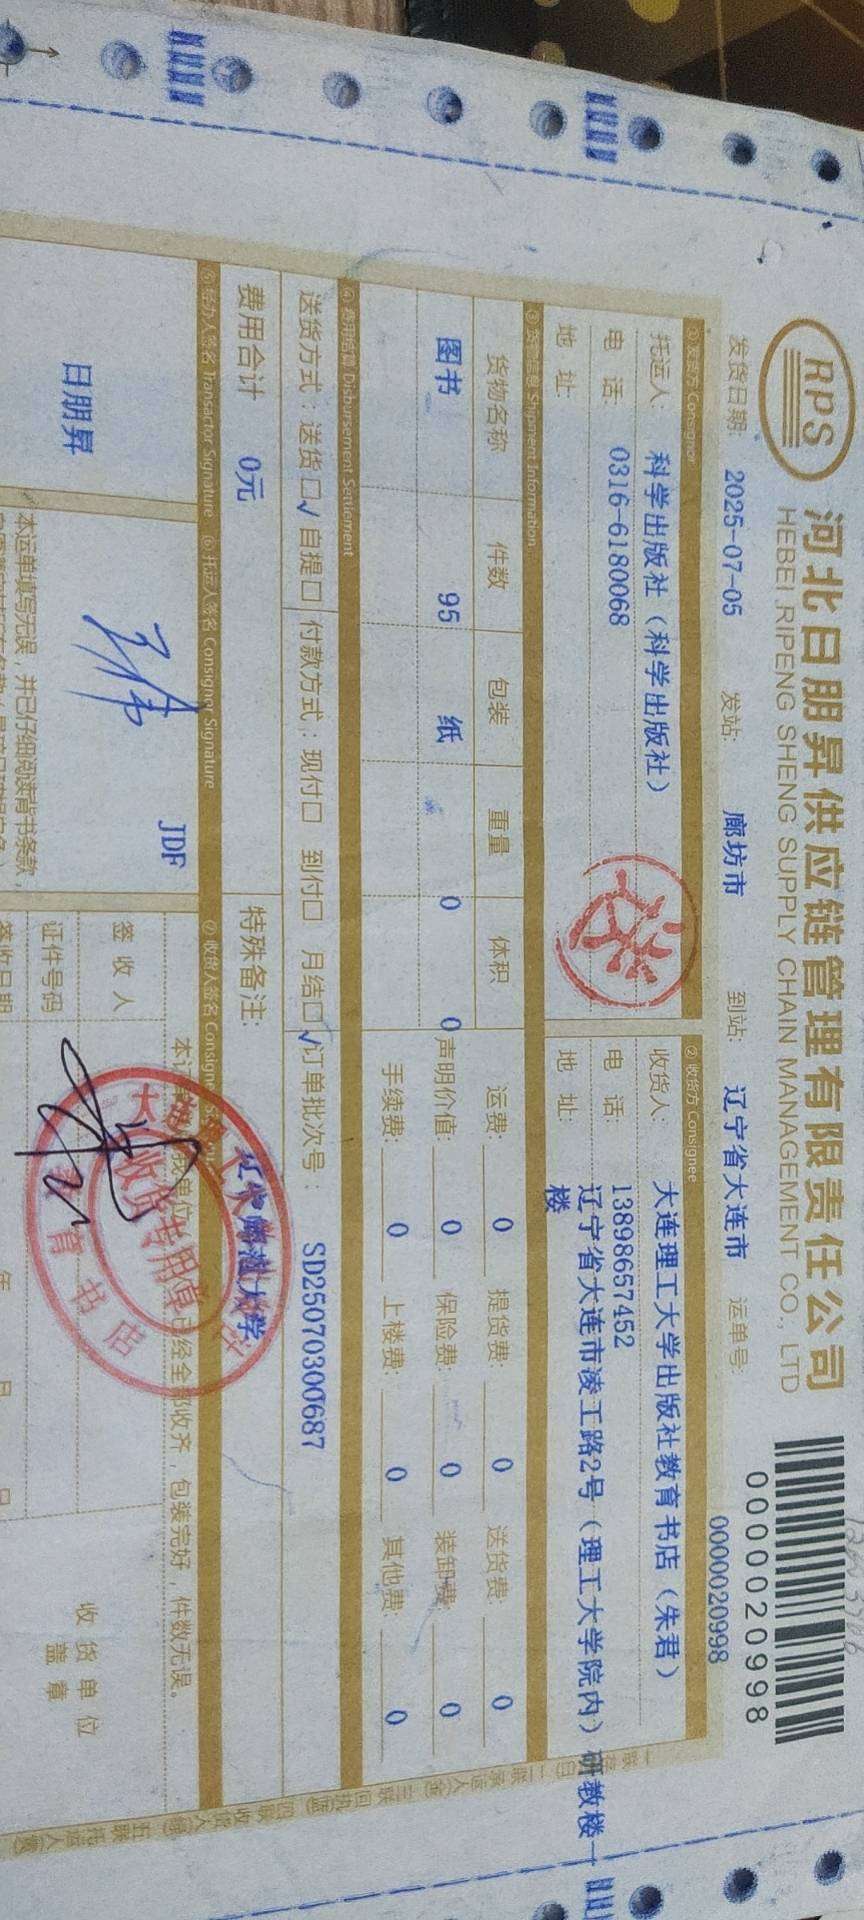 RPS
河北日朋昇供应链管理有限责任公司
HEBEI RIPENG SHENG SUPPLY CHAIN MANAGEMENT CO., LTD
0000020998
发货日期: 2025-07-05 发站: 廊坊市 到站: 辽宁省大连市 运单号: 0000020998
①发货方 Consignor
②收货方 Consignee
托运人: 科学出版社（科学出版社）
收货人: 大连理工大学出版社教育书店（朱君）
电 话: 0316-6180068
电 话: 13898657452
地 址:
地 址: 辽宁省大连市凌工路2号（理工大学院内）研教楼一
楼
Shipment Information
货物名称 件数 包装 重量 体积
运费: 0 提货费: 0 送货费: 0
图书 95 纸 0 0
声明价值: 0 保险费: 0 装卸费: 0
手续费: 0 上楼费: 0 其他费: 0
Disbursement Settlement
送货方式：送货口√ 自提口 付款方式：现付口 到付口 月结口√ 订单批次号： SD25070300687
费用合计 0元
特殊备注:
⑤经办人签名 Transactor Signature ⑥托运人签名 Consigner Signature ⑦收货人签名
日朋昇
JDF
本运单填写无误，并已仔细阅读背书条款，
已经全部收齐，包装完好，件数无误。
签 收 人
证件号码
签收日期
年 月 日
收货单位
盖章
收货专用章
育书店